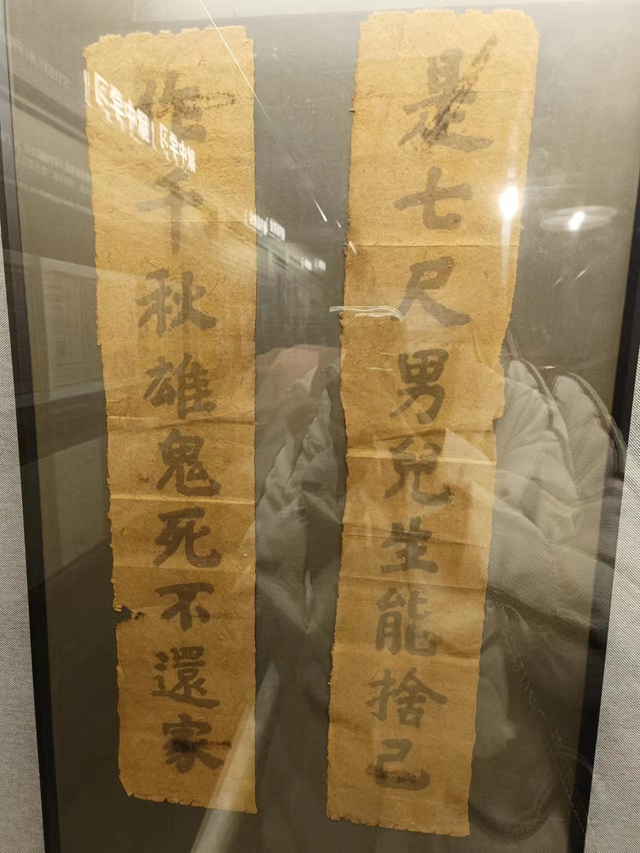 是七尺男兒生能捨己
作千秋雄鬼死不還家